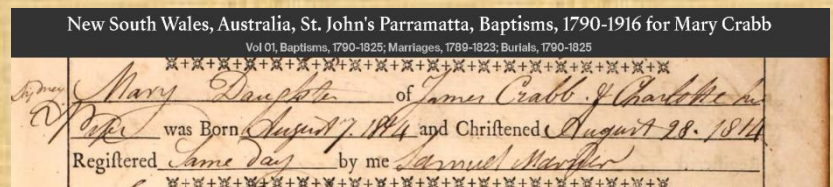 New South Wales, Australia, St. John's Parramatta, Baptisms, 1790-1916 for Mary Crabb
Vol 01, Baptisms, 1790-1825; Marriages, 1789-1823; Burials, 1790-1825
Sydney
Mary Daughter of James Crabb & Charlotte his
Wife was Born August 7. 1814 and Chriſtened August 28. 1814
Regiſtered Same day by me Samuel Marsden